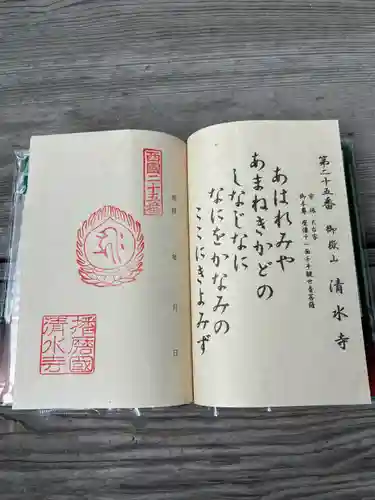 第二十五番 御嶽山 清水寺
宗派 天台宗
御本尊 座像十一面千手観世音菩薩
あはれみや
あまねきかどの
しなじなに
なにをかなみの
ここにきよみず
西国二十五番
昭和 年 月 日
播磨國
清水寺